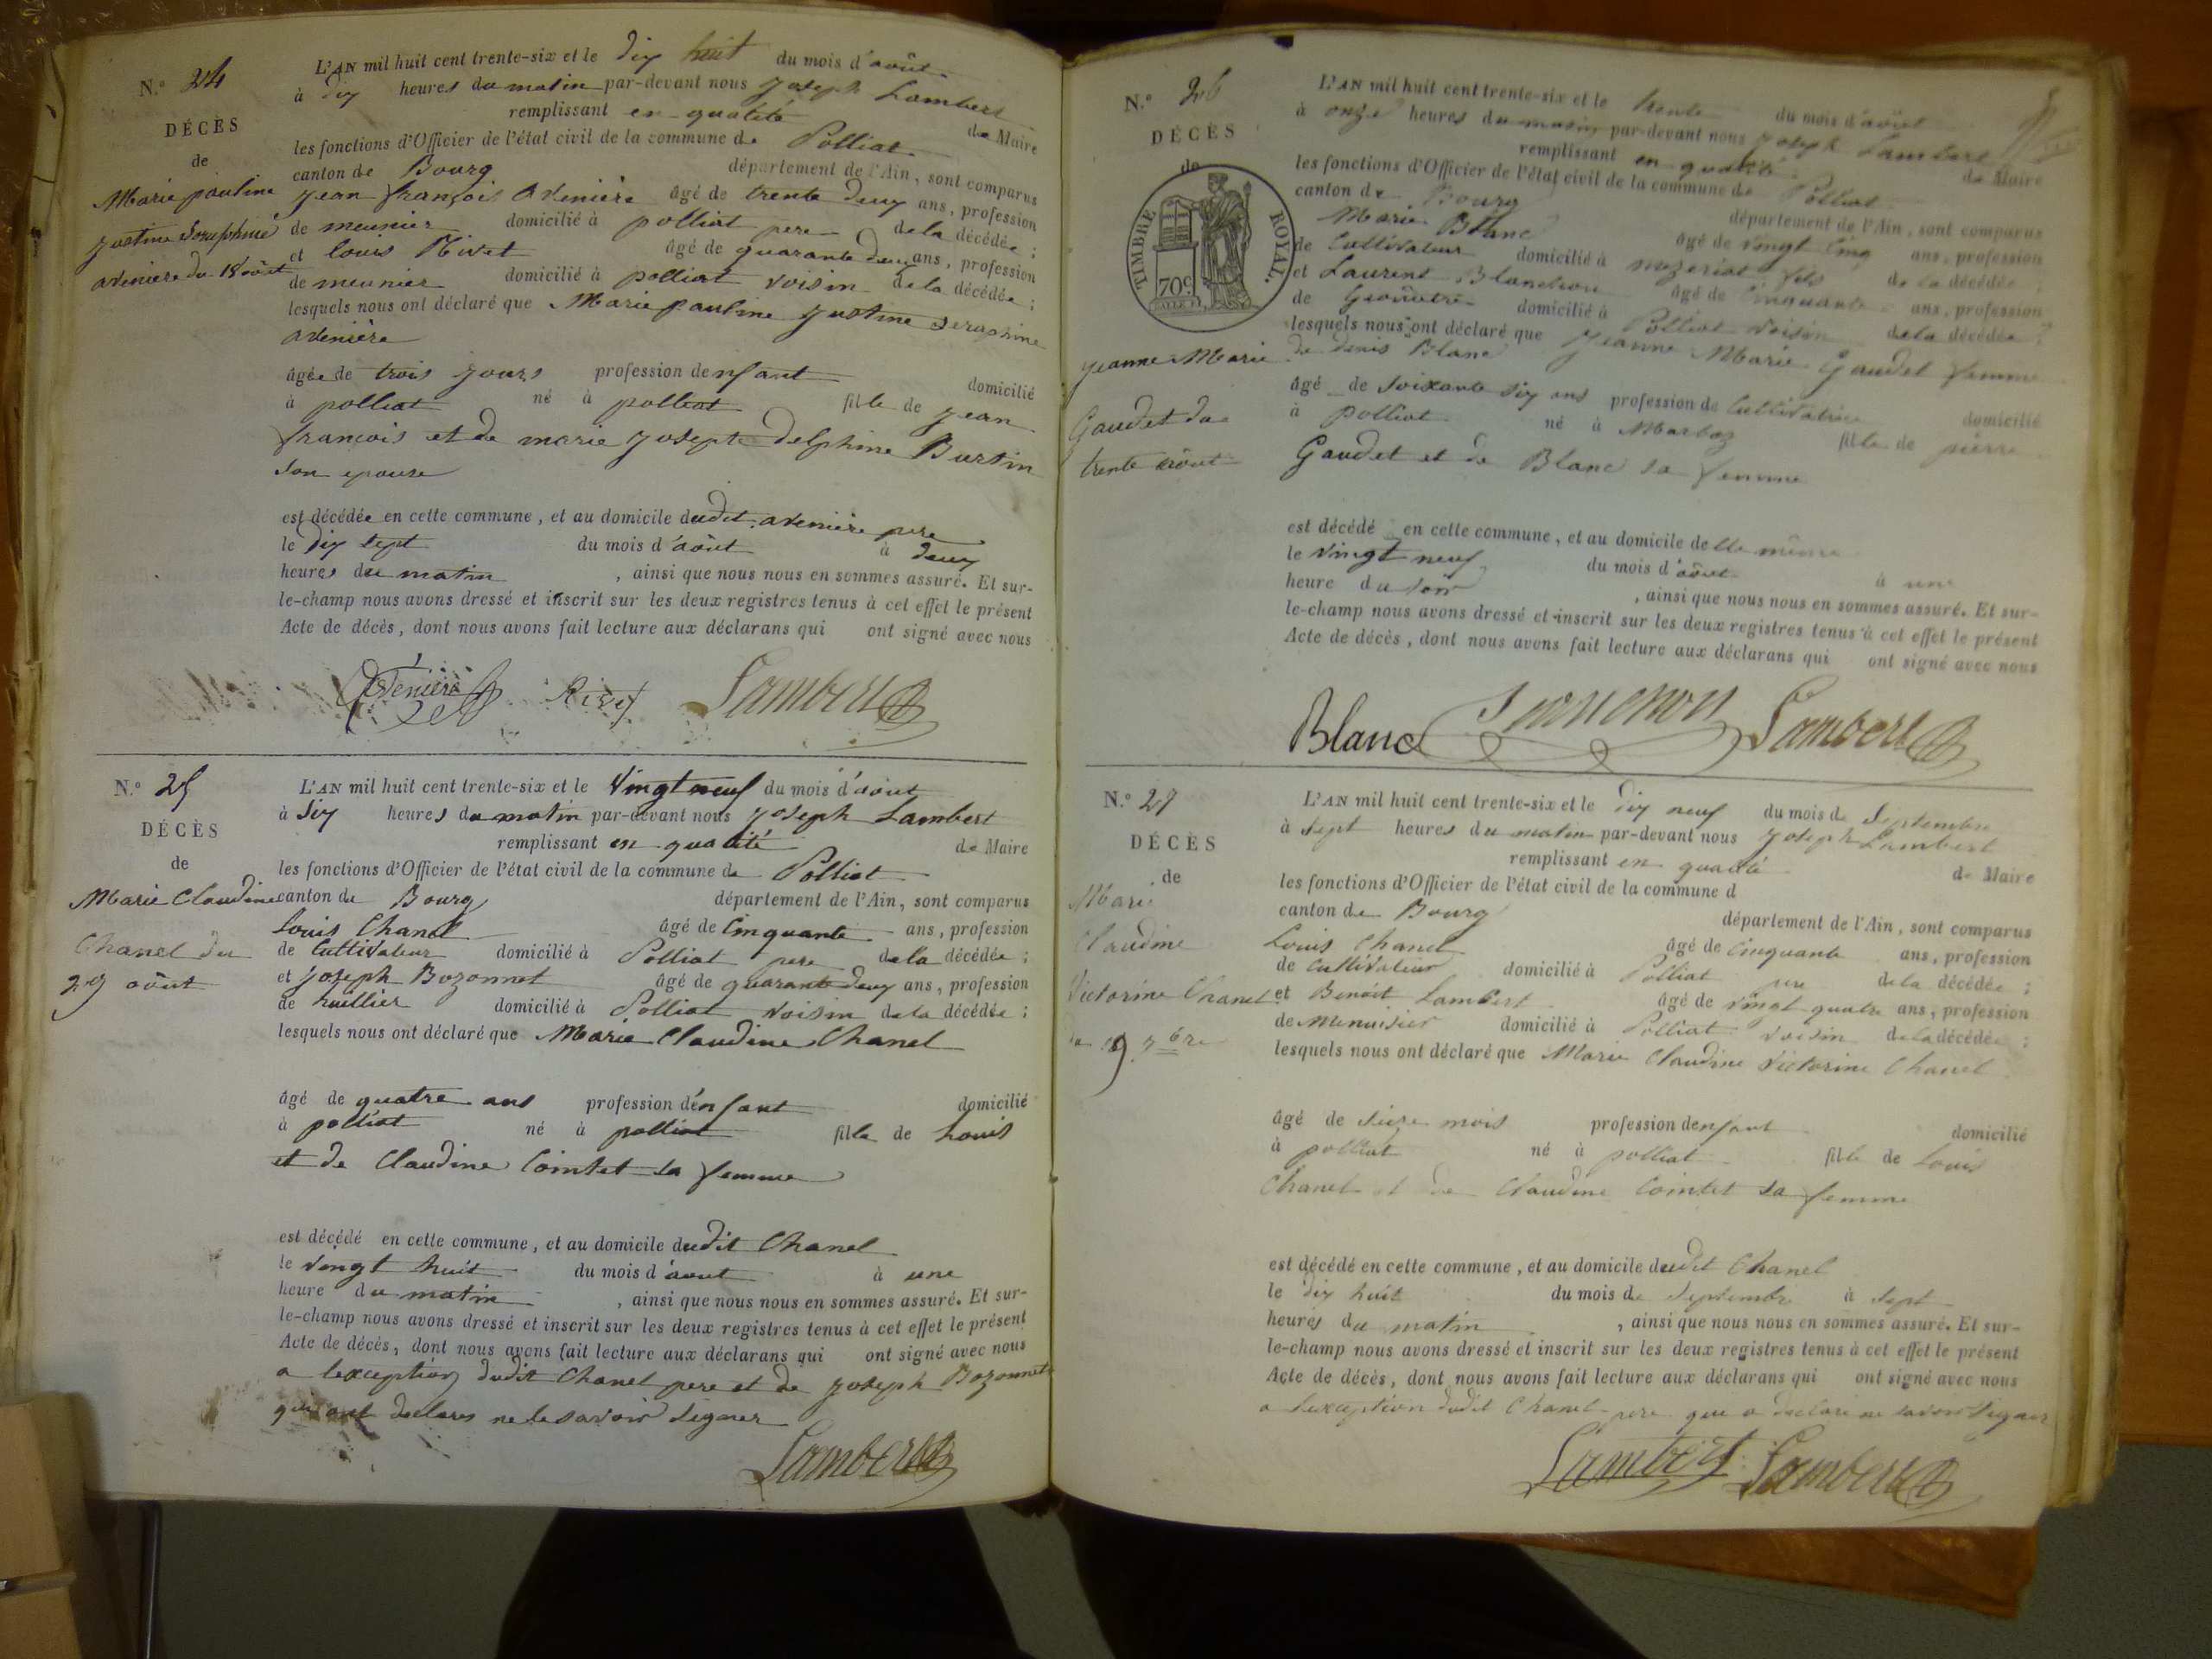 N.° 24
DÉCÈS
de
Marie pauline
justine Seraphine
aveniere du 18 août
L'AN mil huit cent trente-six et le dix huit du mois d'août
à dix heures du matin par-devant nous Joseph Lambert
remplissant en qualité de Maire
les fonctions d'Officier de l'état civil de la commune de Polliat
canton de Bourg département de l'Ain, sont comparus
jean françois Avenière âgé de trente deux ans, profession
de meunier domicilié à polliat pere de la décédée ;
et louis Rivet âgé de quarante deux ans, profession
de meunier domicilié à polliat voisin de la décédée ;
lesquels nous ont déclaré que Marie pauline justine seraphine
avenière
âgée de trois jours profession denfant domicilié
à polliat né à polliat fille de jean
francois et de marie josepte delphine Burtin
son epouse
est décédée en cette commune, et au domicile dudit avenière pere
le dix sept du mois d'août à deux
heures du matin , ainsi que nous nous en sommes assuré. Et sur-
le-champ nous avons dressé et inscrit sur les deux registres tenus à cet effet le présent
Acte de décès, dont nous avons fait lecture aux déclarans qui ont signé avec nous
Avenière Rivet Lambert
N.° 25
DÉCÈS
de
Marie Claudine
Chanel du
29 août
L'AN mil huit cent trente-six et le vingt neuf du mois d'août
à six heures du matin par-devant nous joseph Lambert
remplissant en qualité de Maire
les fonctions d'Officier de l'état civil de la commune de Polliat
canton de Bourg département de l'Ain, sont comparus
Louis Chanel âgé de Cinquante ans, profession
de Cultivateur domicilié à Polliat pere de la décédée ;
et joseph Bozonnet âgé de quarante deux ans, profession
de huillier domicilié à Polliat voisin de la décédée ;
lesquels nous ont déclaré que Marie Claudine Chanel
âgé de quatre ans profession d'enfant domicilié
à polliat né à polliat fille de Louis
et de Claudine Cointet sa femme
est décédé en cette commune, et au domicile dudit Chanel
le vingt huit du mois d'aout à une
heure du matin , ainsi que nous nous en sommes assuré. Et sur-
le-champ nous avons dressé et inscrit sur les deux registres tenus à cet effet le présent
Acte de décès, dont nous avons fait lecture aux déclarans qui ont signé avec nous
a lexception dudit Chanel pere et de joseph Bozonnet
qui ont declares ne le savoir signer
Lambert
N.° 26
DÉCÈS
de
TIMBRE ROYAL.
70c
jeanne Marie
Gaudet du
trente août
L'AN mil huit cent trente-six et le trente du mois d'août
à onze heures du matin par-devant nous joseph Lambert
remplissant en qualité de Maire
les fonctions d'Officier de l'état civil de la commune de Polliat
canton de Bourg département de l'Ain, sont comparus
Marie Blanc âgé de vingt cinq ans, profession
de Cultivateur domicilié à mezeriat fils de la décédée ;
et Laurent Blanchon âgé de Cinquante ans, profession
de Geomètre domicilié à Polliat voisin de la décédée ;
lesquels nous ont déclaré que jeanne Marie Gaudet femme
de denis Blanc
âgé de soixante six ans profession de Cultivatrice domicilié
à polliat né à Marboz fille de pierre
Gaudet et de Blanc sa femme
est décédé en cette commune, et au domicile delle même
le vingt neuf du mois d'août à une
heure du soir , ainsi que nous nous en sommes assuré. Et sur-
le-champ nous avons dressé et inscrit sur les deux registres tenus à cet effet le présent
Acte de décès, dont nous avons fait lecture aux déclarans qui ont signé avec nous
Blanc Lambert
N.° 27
DÉCÈS
de
Marie
Claudine
Victorine Chanel
du 19 7bre
L'AN mil huit cent trente-six et le dix neuf du mois de Septembre
à sept heures du matin par-devant nous joseph Lambert
remplissant en qualité de Maire
les fonctions d'Officier de l'état civil de la commune d
canton de Bourg département de l'Ain, sont comparus
Louis Chanel âgé de Cinquante ans, profession
de Cultivateur domicilié à Polliat pere de la décédée ;
et Benoit Lambert âgé de vingt quatre ans, profession
de Menuisier domicilié à Polliat voisin de la décédée ;
lesquels nous ont déclaré que Marie Claudine Victorine Chanel
âgé de seize mois profession denfant domicilié
à polliat né à polliat fille de Louis
Chanel et de Claudine Cointet sa femme
est décédé en cette commune, et au domicile dudit Chanel
le dix huit du mois de Septembre à sept
heures du matin , ainsi que nous nous en sommes assuré. Et sur-
le-champ nous avons dressé et inscrit sur les deux registres tenus à cet effet le présent
Acte de décès, dont nous avons fait lecture aux déclarans qui ont signé avec nous
a lexception dudit Chanel pere qui a declaré ne savoir signer
Lambert Lambert